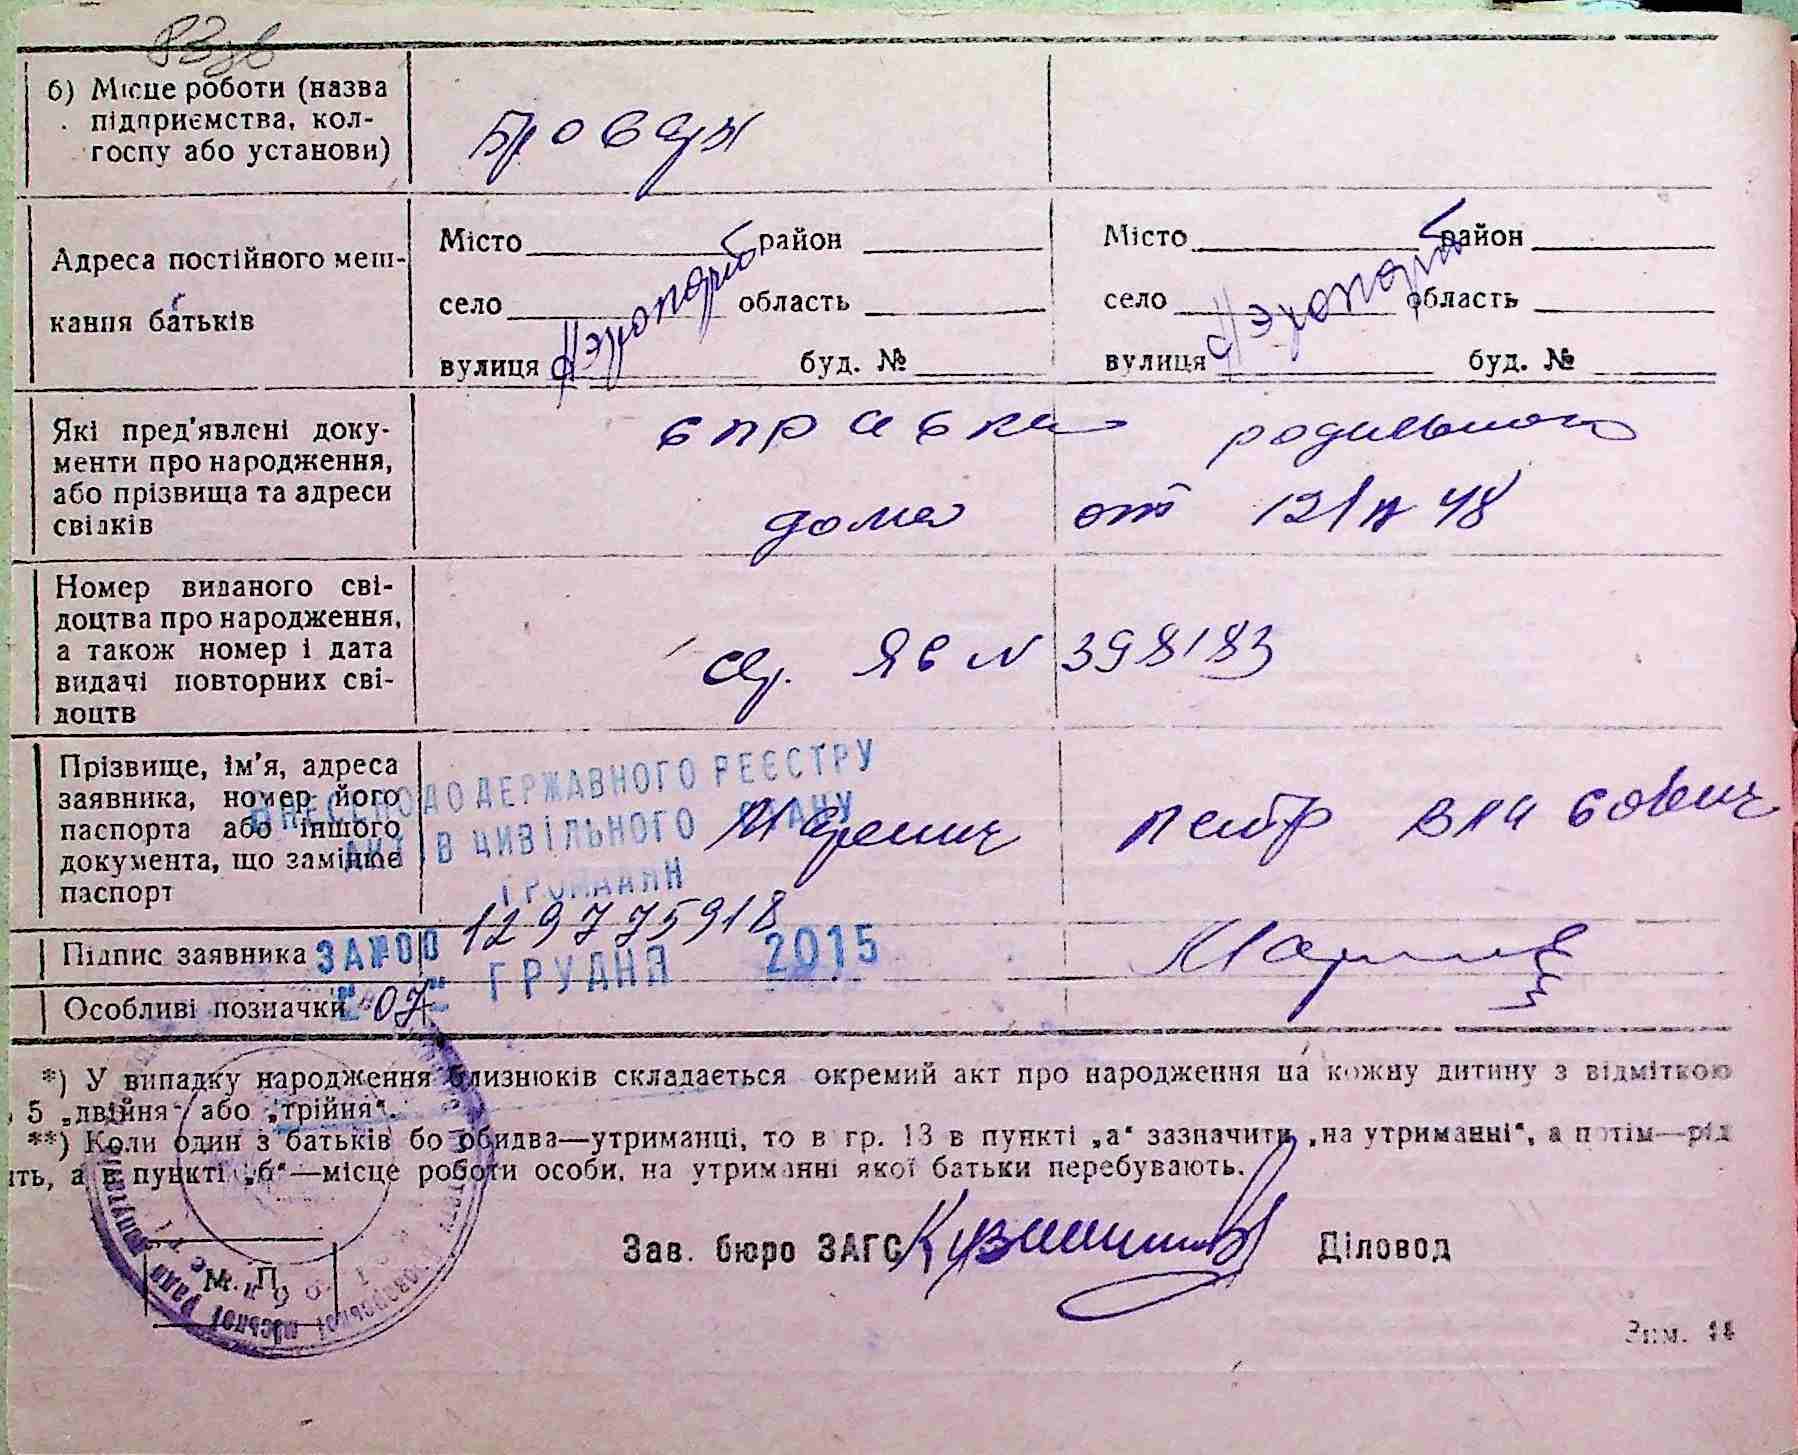 б) Місце роботи (назва
підприємства, кол-
госпу або установи)
Бровари
Адреса постійного меш-
кання батьків
Місто район
село область
вулиця буд. №
Аэропорт
Місто район
село область
вулиця буд. №
Аэропорт
Які пред'явлені доку-
менти про народження,
або прізвища та адреси
свідків
справка родильного
дома от 12/IV 48
Номер виданого сві-
доцтва про народження,
а також номер і дата
видачі повторних сві-
доцтв
св. ЯБ № 398183
Прізвище, ім'я, адреса
заявника, номер його
паспорта або іншого
документа, що замінює
паспорт
Маренич Петр Власович
ВНЕСЕНО ДО ДЕРЖАВНОГО РЕЄСТРУ
АКТІВ ЦИВІЛЬНОГО СТАНУ
ГРОМАДЯН
ЗА № 00129775918
"07" ГРУДНЯ 2015
Підпис заявника
Особливі позначки
*) У випадку народження близнюків складається окремий акт про народження на кожну дитину з відміткою
5 „двійня" або „трійня".
**) Коли один з батьків бо обидва—утриманці, то в гр. 13 в пункті „а" зазначити „на утриманні", а потім—рід
ить, а в пункті „б"—місце роботи особи, на утриманні якої батьки перебувають.
Зав. бюро ЗАГС Діловод
М. П.
Зам.